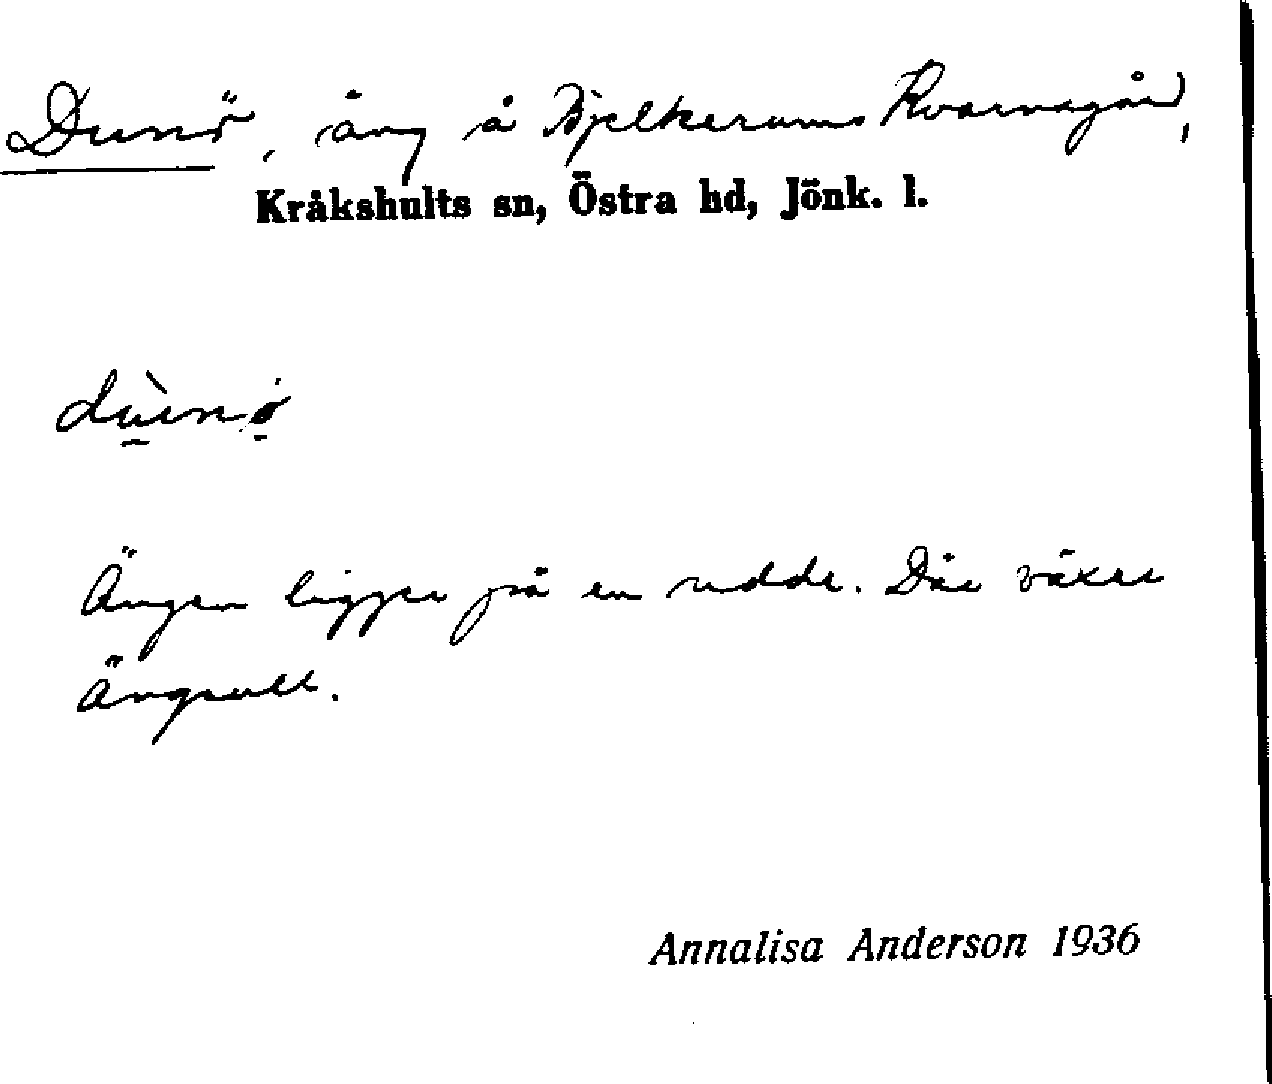 Dunö, äng å Bjelkerums Kvarnagård,
Kråkshults sn, Östra hd, Jönk. l.
Ängen ligger på en udde. Där växer
Ängsull.
Annalisa Anderson 1936